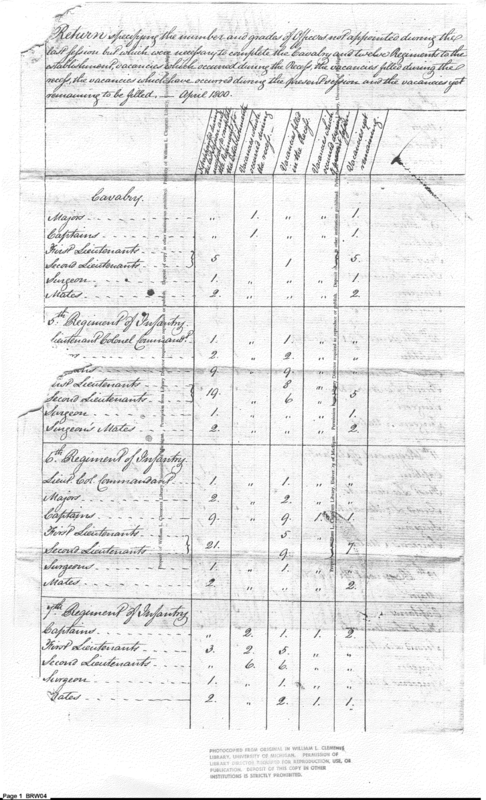 Return specifying the number and grades of Officers not appointed during the
last session but which were necessary to complete the Cavalry and twelve Regiments to the
establishment vacancies which occurred during the Recess, the vacancies filled during the
recess, the vacancies which have occurred during the present session and the vacancies yet
remaining to be filled. — April 1800.
Vacancies which occurred during the recess. Vacancies filled in the Recess. Vacancies which Vacancies yet remaining.
Cavalry.
Majors " 1. " " 1.
Captains " 1. " " 1.
First Lieutenants
Second Lieutenants } 5 1 5.
Surgeon 1. " " " 1.
Mates 2. " " " 2.
5th Regiment of Infantry
Lieutenant Colonel Command.t 1. " 1. "
2. " 2. "
9. " 9. "
First Lieutenants 8
Second Lieutenants } 19. " 6 " 5
Surgeon 1. " " " 1.
Surgeon's Mates 2. " " " 2.
6th Regiment of Infantry
Lieut. Col. Commandant 1. " 1. "
Majors 2. " 2. "
Captains 9. " 9. 1. 1.
First Lieutenants 5
Second Lieutenants } 21. 9. 7.
Surgeons 1. " 1. "
Mates 2. " " 2.
7th Regiment of Infantry
Captains " 2. 1. 1. 2
First Lieutenants 3. 2 5. " "
Second Lieutenants " 6. 6. " "
Surgeon 1. " 1. "
Mates 2. " 2. 1. 1.
PHOTOCOPIED FROM ORIGINAL IN WILLIAM L. CLEMENTS
LIBRARY, UNIVERSITY OF MICHIGAN. PERMISSION OF
LIBRARY DIRECTOR REQUIRED FOR REPRODUCTION, USE, OR
PUBLICATION. DEPOSIT OF THIS COPY IN OTHER
INSTITUTIONS IS STRICTLY PROHIBITED.
Page 1 BRW04